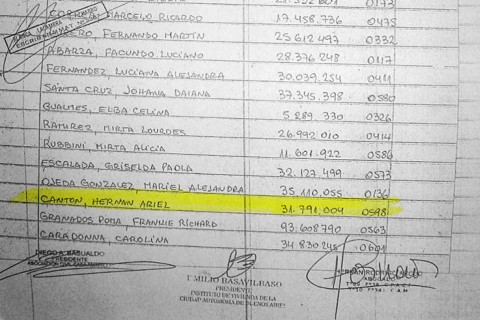 MARCELO RICARDO 17.458.736 0475
FERNANDO MARTIN 25 612 497 0332
ABARZA, FACUNDO LUCIANO 28.376 248 0117
FERNANDEZ, LUCIANA ALEJANDRA 30.039.254 0411
SANTA CRUZ, JOHANA DAIANA 37.345.398 0580
GUALMES, ELBA CELINA 5 289 330 0326
RAMIREZ, MIRTA LOURDES 26.992 010 0414
RUBBINI, MIRTA ALICIA 11.601.922 0586
ESCALADA, GRISELDA PAOLA 32.127.499 0573
OJEDA GONZALEZ, MARIEL ALEJANDRA 35.110.055 0136
CANTON, HERNAN ARIEL 31.791.004 0598
GRANADOS POMA, FRANNIE RICHARD 93.608790 0563
CARADONNA, CAROLINA 34 830 245 0601
DIEGO A. BASUALDO
PRESIDENTE
EMILIO BASAVILBASO
PRESIDENTE
INSTITUTO DE VIVIENDA DE LA
CIUDAD AUTONOMA DE BUENOS AIRES
ABOGADO